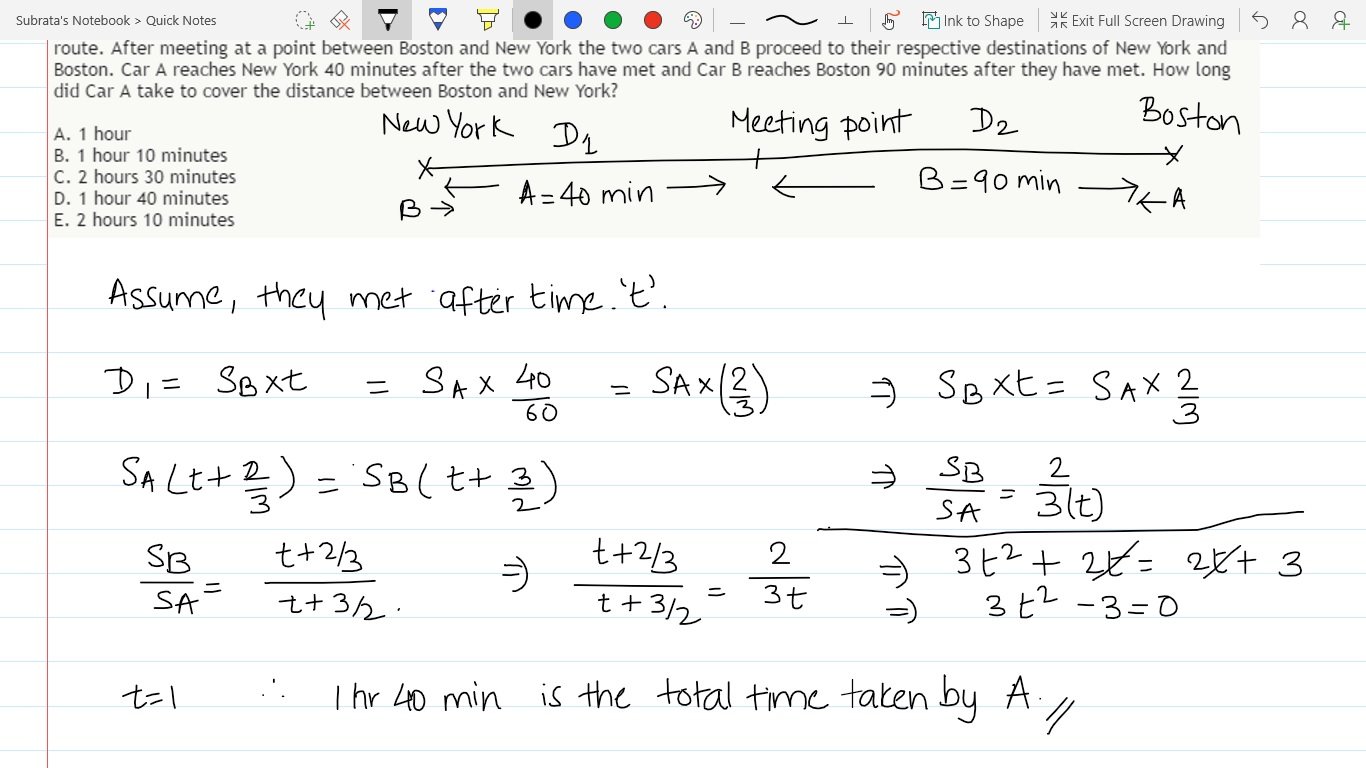 Subrata's Notebook > Quick Notes
Ink to Shape
Exit Full Screen Drawing
route. After meeting at a point between Boston and New York the two cars A and B proceed to their respective destinations of New York and
Boston. Car A reaches New York 40 minutes after the two cars have met and Car B reaches Boston 90 minutes after they have met. How long
did Car A take to cover the distance between Boston and New York?
A. 1 hour
B. 1 hour 10 minutes
C. 2 hours 30 minutes
D. 1 hour 40 minutes
E. 2 hours 10 minutes
New York D1 Meeting point D2 Boston
B → ← A = 40 min → ← B = 90 min → ← A
Assume, they met after time 't'.
D1 = SB×t = SA × 40/60 = SA×(2/3) ⇒ SB×t = SA× 2/3
SA(t+2/3) = SB(t+3/2) ⇒ SB/SA = 2/3(t)
SB/SA = t+2/3 / t+3/2. ⇒ t+2/3 / t+3/2 = 2/3t ⇒ 3t² + 2t = 2t + 3
⇒ 3t² - 3 = 0
t=1 ∴ 1 hr 40 min is the total time taken by A.//